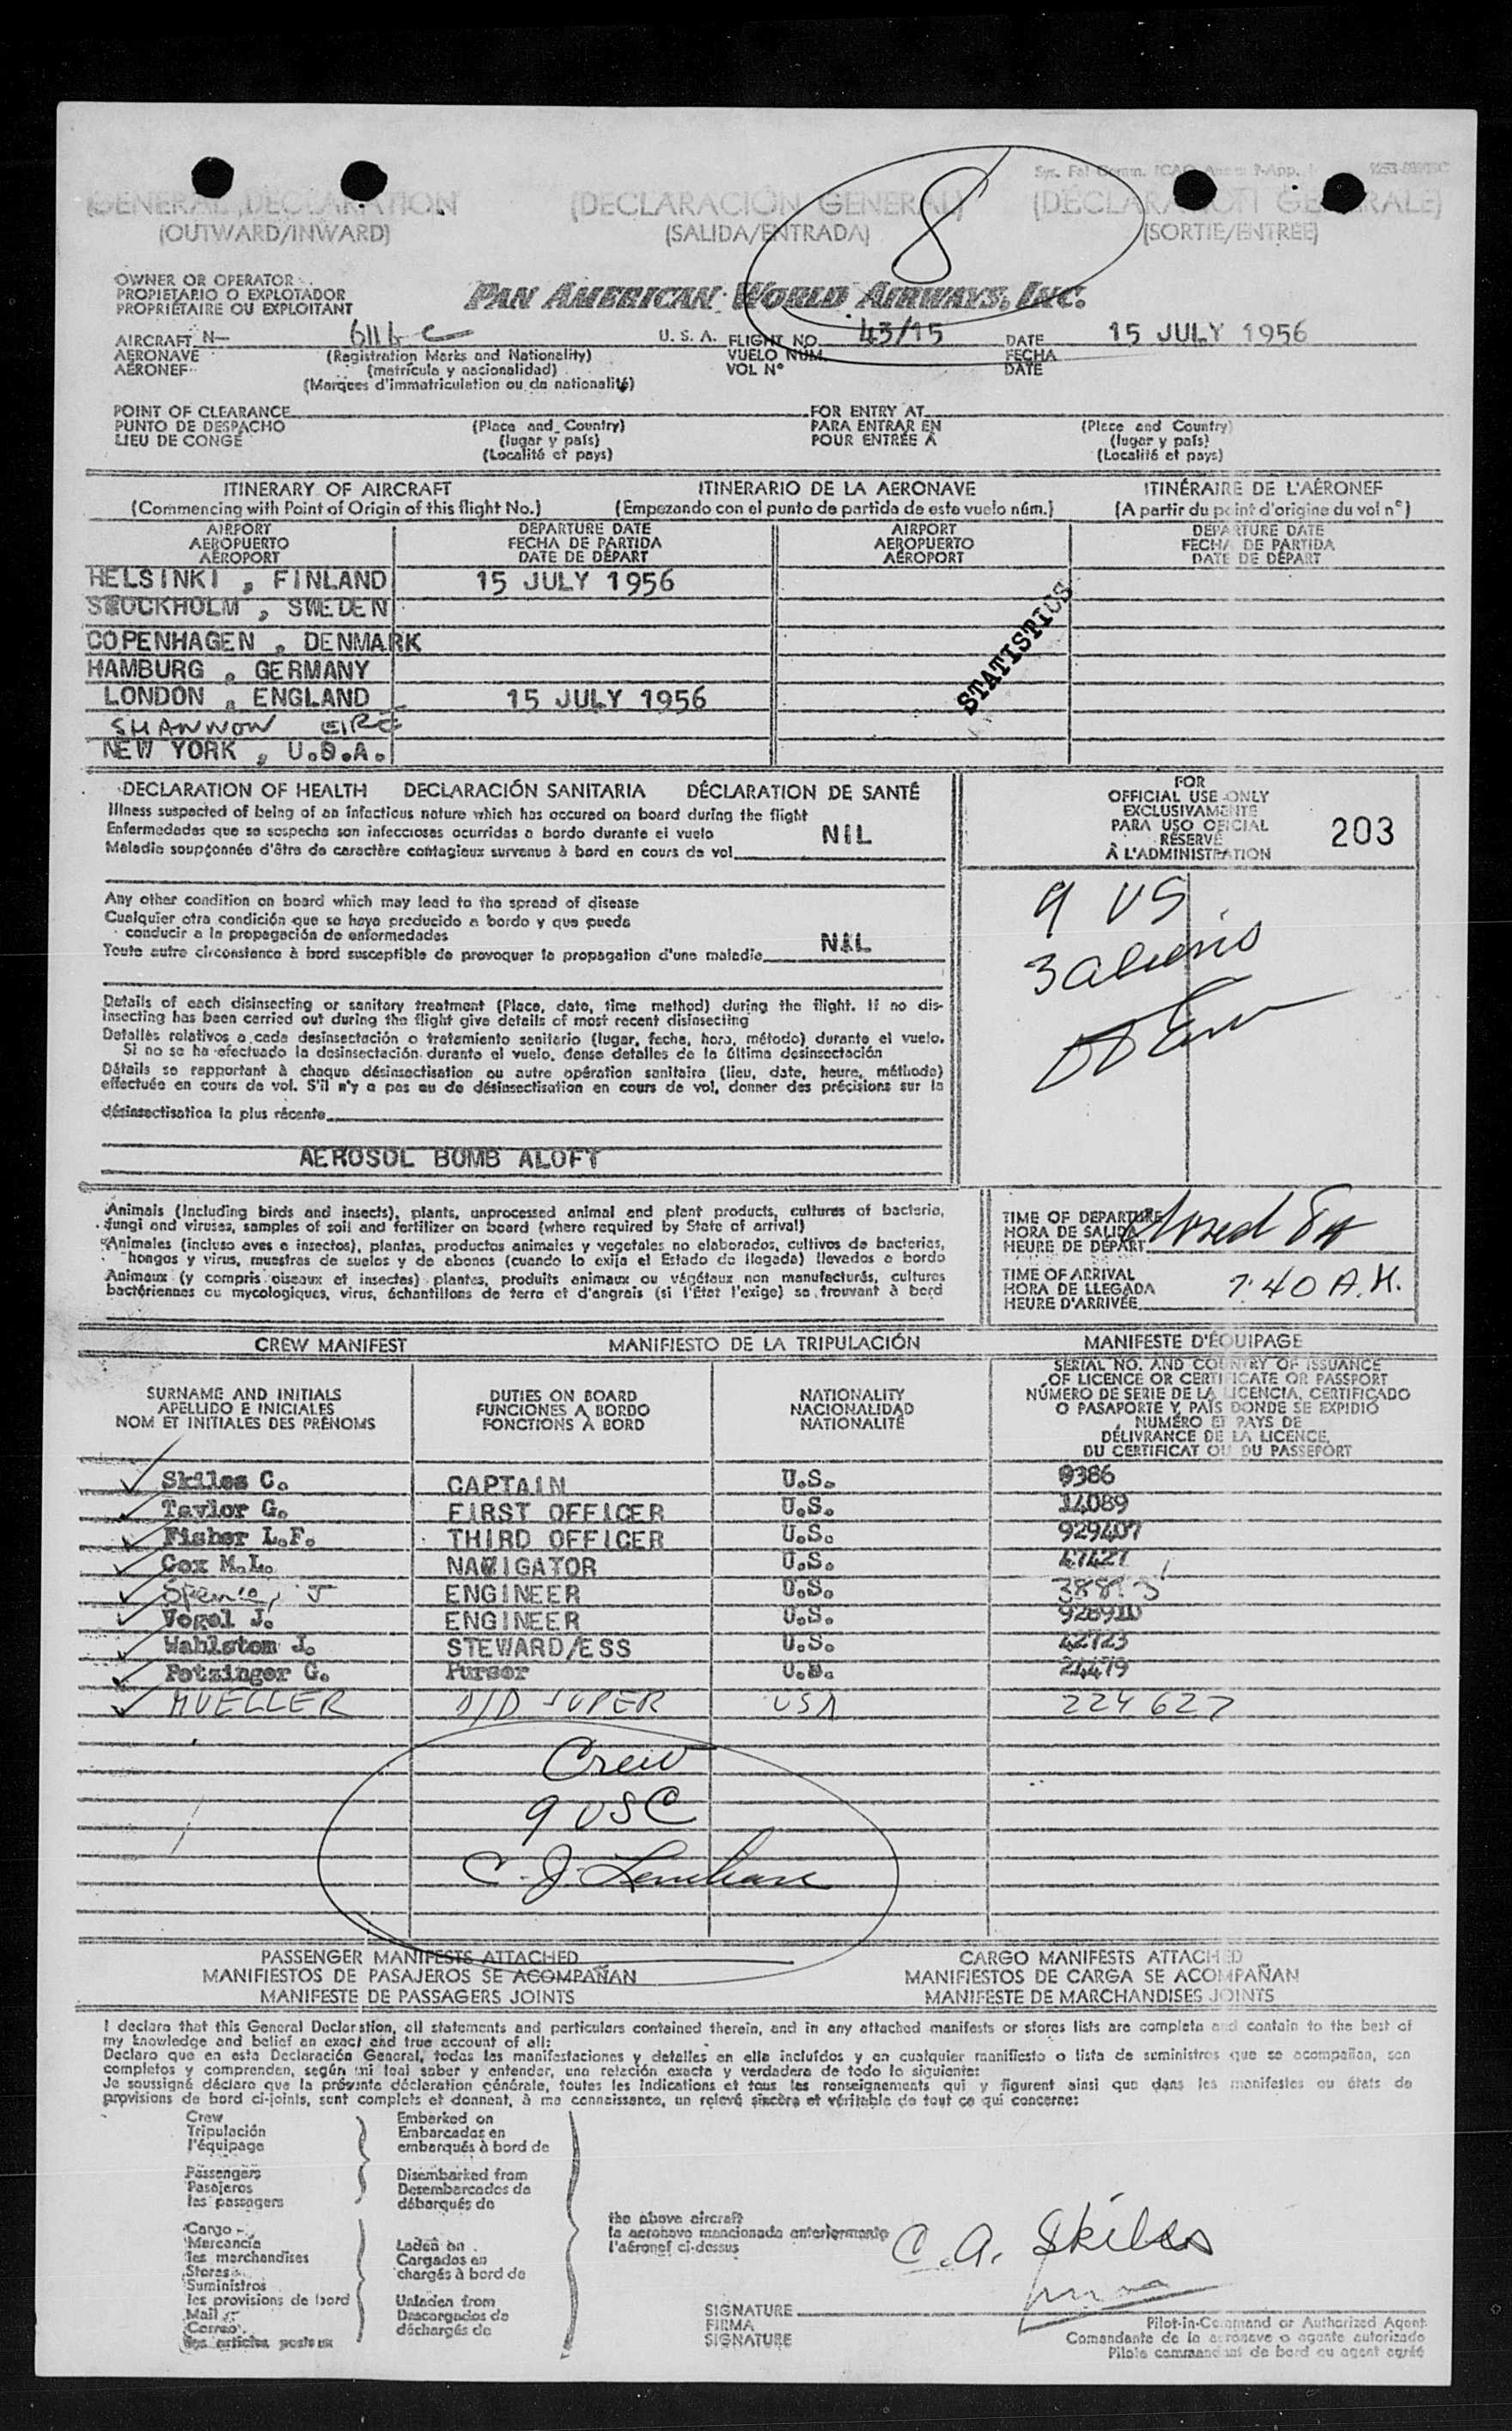 (GENERAL DECLARATION (DECLARACIÓN GENERAL) (DÉCLARATION GENERALE)
(OUTWARD/INWARD) (SALIDA/ENTRADA) (SORTIE/ENTRÉE)
8
OWNER OR OPERATOR
PROPIETARIO O EXPLOTADOR
PROPRIÉTAIRE OU EXPLOITANT
PAN AMERICAN WORLD AIRWAYS, INC.
AIRCRAFT N— U. S. A. FLIGHT NO. 43/15 DATE 15 JULY 1956
AERONAVE (Registration Marks and Nationality) VUELO NUM. FECHA
AÉRONEF (matrícula y nacionalidad) VOL Nº DATE
(Marques d'immatriculation ou de nationalité)
POINT OF CLEARANCE FOR ENTRY AT
PUNTO DE DESPACHO (Place and Country) PARA ENTRAR EN (Place and Country)
LIEU DE CONGÉ (lugar y país) POUR ENTRÉE À (lugar y país)
(Localité et pays) (Localité et pays)
ITINERARY OF AIRCRAFT ITINERARIO DE LA AERONAVE ITINÉRAIRE DE L'AÉRONEF
(Commencing with Point of Origin of this flight No.) (Empezando con el punto de partida de este vuelo núm.) (A partir du point d'origine du vol nº)
AIRPORT DEPARTURE DATE AIRPORT DEPARTURE DATE
AEROPUERTO FECHA DE PARTIDA AEROPUERTO FECHA DE PARTIDA
AÉROPORT DATE DE DÉPART AÉROPORT DATE DE DÉPART
HELSINKI , FINLAND 15 JULY 1956
STOCKHOLM , SWEDEN
COPENHAGEN , DENMARK
HAMBURG , GERMANY
LONDON , ENGLAND 15 JULY 1956
SHANNON EIRE
NEW YORK , U.S.A.
STATISTICS
DECLARATION OF HEALTH DECLARACIÓN SANITARIA DÉCLARATION DE SANTÉ
Illness suspected of being of an infectious nature which has occured on board during the flight
Enfermedades que se sospecha son infecciosas ocurridas a bordo durante el vuelo NIL
Maladie soupçonnée d'être de caractère contagieux survenue à bord en cours de vol
FOR
OFFICIAL USE ONLY
EXCLUSIVAMENTE
PARA USO OFICIAL 203
RÉSERVÉ
À L'ADMINISTRATION
Any other condition on board which may lead to the spread of disease
Cualquier otra condición que se haya producido a bordo y que pueda
conducir a la propagación de enfermedades
Toute autre circonstance à bord susceptible de provoquer la propagation d'une maladie NIL
9 US
3 aliens
Details of each disinsecting or sanitary treatment (Place, date, time method) during the flight. If no dis-
insecting has been carried out during the flight give details of most recent disinsecting
Detalles relativos a cada desinsectación o tratamiento sanitario (lugar, fecha, hora, método) durante el vuelo.
Si no se ha efectuado la desinsectación durante el vuelo, dense detalles de la última desinsectación
Détails se rapportant à chaque désinsectisation ou autre opération sanitaire (lieu, date, heure, méthode)
effectuée en cours de vol. S'il n'y a pas eu de désinsectisation en cours de vol, donner des précisions sur la
désinsectisation la plus récente
AEROSOL BOMB ALOFT
Animals (including birds and insects), plants, unprocessed animal and plant products, cultures of bacteria,
fungi and viruses, samples of soil and fertilizer on board (where required by State of arrival)
Animales (incluso aves e insectos), plantas, productos animales y vegetales no elaborados, cultivos de bacterias,
hongos y virus, muestras de suelos y de abonos (cuando lo exija el Estado de llegada) llevados a bordo
Animaux (y compris oiseaux et insectes) plantes, produits animaux ou végétaux non manufacturés, cultures
bactériennes ou mycologiques, virus, échantillons de terre et d'engrais (si l'État l'exige) se trouvant à bord
TIME OF DEPARTURE
HORA DE SALIDA
HEURE DE DÉPART
TIME OF ARRIVAL
HORA DE LLEGADA 7:40 A.M.
HEURE D'ARRIVÉE
CREW MANIFEST MANIFIESTO DE LA TRIPULACIÓN MANIFESTE D'ÉQUIPAGE
SURNAME AND INITIALS DUTIES ON BOARD NATIONALITY
APELLIDO E INICIALES FUNCIONES A BORDO NACIONALIDAD
NOM ET INITIALES DES PRÉNOMS FONCTIONS À BORD NATIONALITÉ
SERIAL NO. AND COUNTRY OF ISSUANCE
OF LICENCE OR CERTIFICATE OR PASSPORT
NÚMERO DE SERIE DE LA LICENCIA, CERTIFICADO
O PASAPORTE Y PAÍS DONDE SE EXPIDIÓ
NUMÉRO ET PAYS DE
DÉLIVRANCE DE LA LICENCE,
DU CERTIFICAT OU DU PASSEPORT
Skiles C. CAPTAIN U.S. 0386
Taylor G. FIRST OFFICER U.S. 14089
Fisher L.F. THIRD OFFICER U.S. 929407
Cox M.L. NAVIGATOR U.S. 47427
J ENGINEER U.S.
Vogel J. ENGINEER U.S. 928910
Wahlstom J. STEWARD/ESS U.S. 42723
Potzinger G. Purser U.S. 24479
MUELLER D/D SUPER USA 224627
Crew
9 USC
C. J. Lenihan
PASSENGER MANIFESTS ATTACHED CARGO MANIFESTS ATTACHED
MANIFIESTOS DE PASAJEROS SE ACOMPAÑAN MANIFIESTOS DE CARGA SE ACOMPAÑAN
MANIFESTE DE PASSAGERS JOINTS MANIFESTE DE MARCHANDISES JOINTS
I declare that this General Declaration, all statements and particulars contained therein, and in any attached manifests or stores lists are complete and contain to the best of
my knowledge and belief an exact and true account of all:
Declaro que en esta Declaración General, todas las manifestaciones y detalles en ella incluídos y en cualquier manifiesto o lista de suministros que se acompañan, son
completos y comprenden, según mi leal saber y entender, una relación exacta y verdadera de todo lo siguiente:
Je soussigné déclare que la présente déclaration générale, toutes les indications et tous les renseignements qui y figurent ainsi que dans les manifestes ou états de
provisions de bord ci-joints, sont complets et donnent, à ma connaissance, un relevé sincère et véritable de tout ce qui concerne:
Crew Embarked on
Tripulación Embarcados en
l'équipage embarqués à bord de
Passengers Disembarked from
Pasajeros Desembarcados de
les passagers débarqués de
the above aircraft
la aeronave mencionada anteriormente
l'aéronef ci-dessus
Cargo
Mercancía Laden on
les marchandises Cargados en
Stores chargés à bord de
Suministros
les provisions de bord Unladen from
Mail Descargados de
Correo déchargés de
les articles postaux
C. A. Skiles
SIGNATURE
FIRMA
SIGNATURE
Pilot-in-Command or Authorized Agent
Comandante de la aeronave o agente autorizado
Pilote commandant de bord ou agent agréé